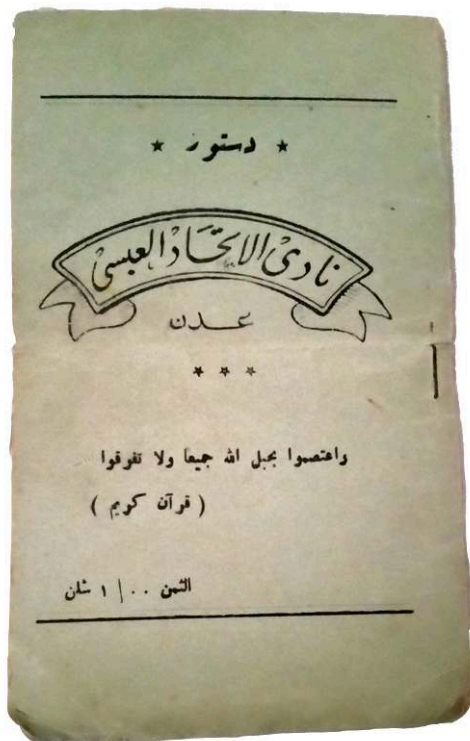 ★ دستور ★
نادي الاتحاد العبسي
عدن
★ ★ ★
واعتصموا بحبل الله جميعا ولا تفرقوا
( قرآن كريم )
الثمن ٠٠ | ١ شلن